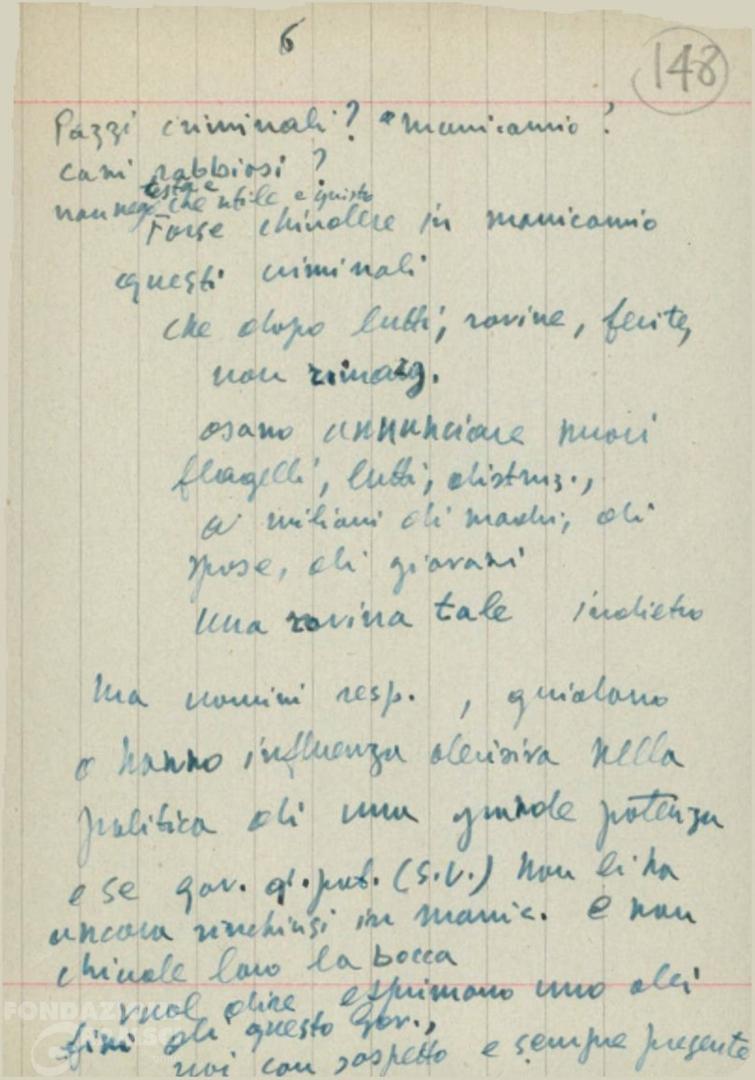 6
148
Pazzi criminali? manicomio?
cani rabbiosi?
testa e
non nego che utile e giusto
Forse chiudere in manicomio
questi criminali
che dopo lutti, rovine, ferite,
non rimarg.
osano annunciare nuovi
flagelli, lutti, distruz.,
a milioni di madri, di
spose, di giovani
una rovina tale indietro
Ma uomini resp., guidano
o hanno influenza decisiva nella
politica di una grande potenza
e se gov. g. pot. (S.U.) non li ha
ancora rinchiusi in manic. e non
chiude loro la bocca
vuol dire esprimono uno dei
fini di questo gov.,
noi con sospetto e sempre presente
FONDAZIONE